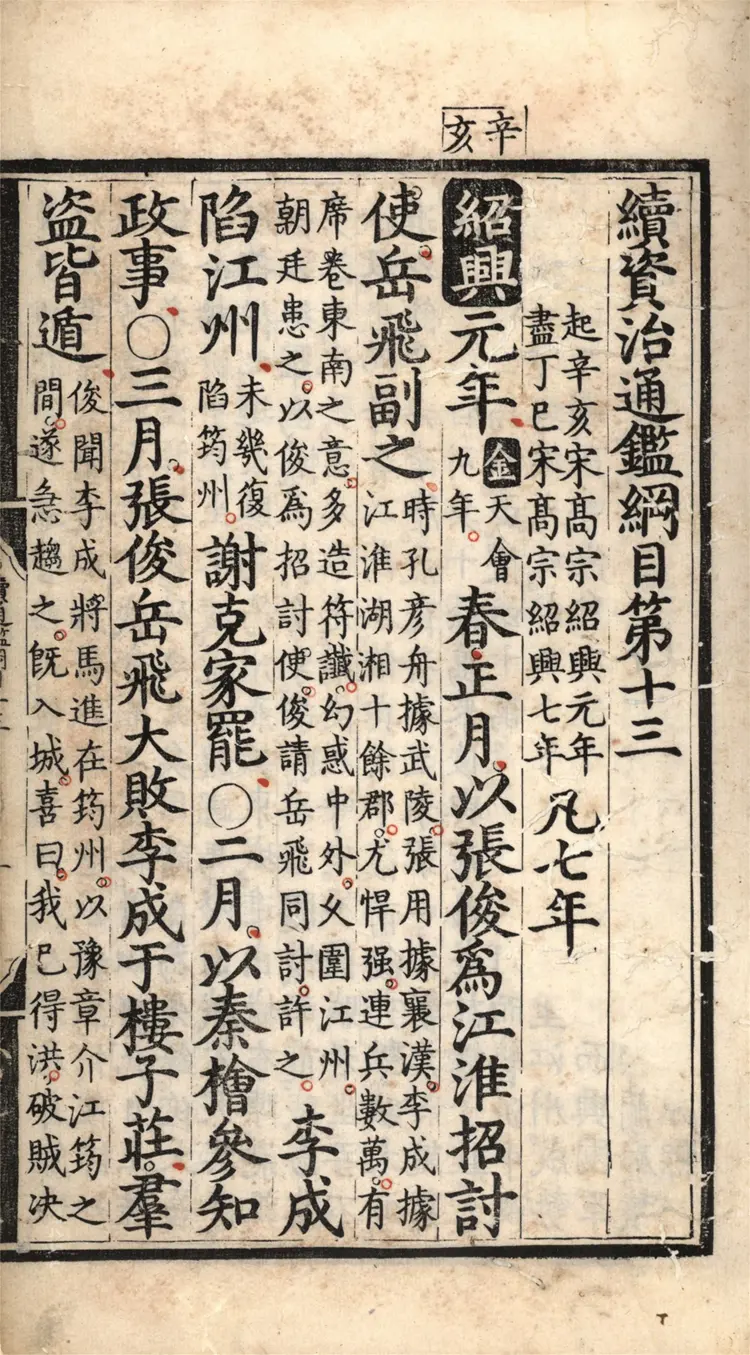 辛亥
續資治通鑑綱目第十三
起辛亥宋高宗紹興元年
盡丁巳宋高宗紹興七年
凡七年
紹興元年
金天會
九年
春正月以張俊爲江淮招討
使岳飛副之
時孔彥舟據武陵張用據襄漢李成據
江淮湖湘十餘郡尤悍强連兵數萬有
席卷東南之意多造符讖幻惑中外久圍江州
朝廷患之以俊爲招討使俊請岳飛同討許之
李成
陷江州
未幾復
陷筠州
謝克家罷○二月以秦檜參知
政事○三月張俊岳飛大敗李成于樓子莊羣
盜皆遁
俊聞李成將馬進在筠州以豫章介江筠之
間遂急趨之旣入城喜曰我已得洪破賊决